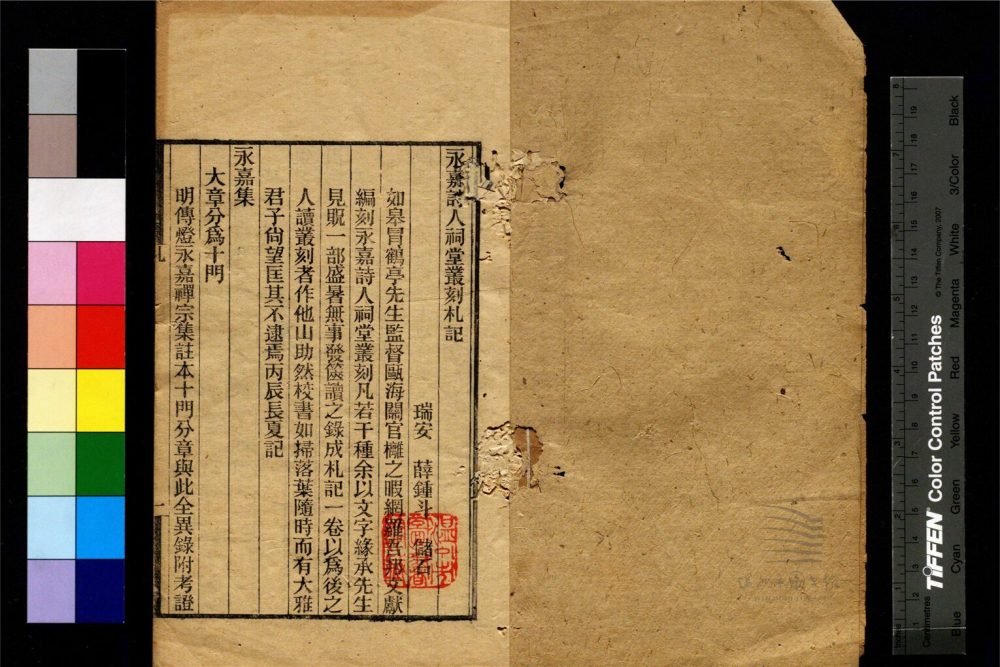 永嘉詩人祠堂叢刻札記
瑞安　薛鍾斗　儲石
如皋冒鶴亭先生監督甌海關官權之暇網羅吾邦文獻
編刻永嘉詩人祠堂叢刻凡若干種余以文字緣承先生
見貺一部盛暑無事發篋讀之錄成札記一卷以爲後之
人讀叢刻者作他山助然校書如掃落葉隨時而有大雅
君子尙望匡其不逮焉丙辰長夏記
永嘉集
大章分爲十門
明傳燈永嘉禪宗集註本十門分章與此全異錄附考證
一
TIFFEN Color Control Patches
© The Tiffen Company, 2007
Blue Cyan Green Yellow Red Magenta White 3/Color Black
Inches
Centimetres